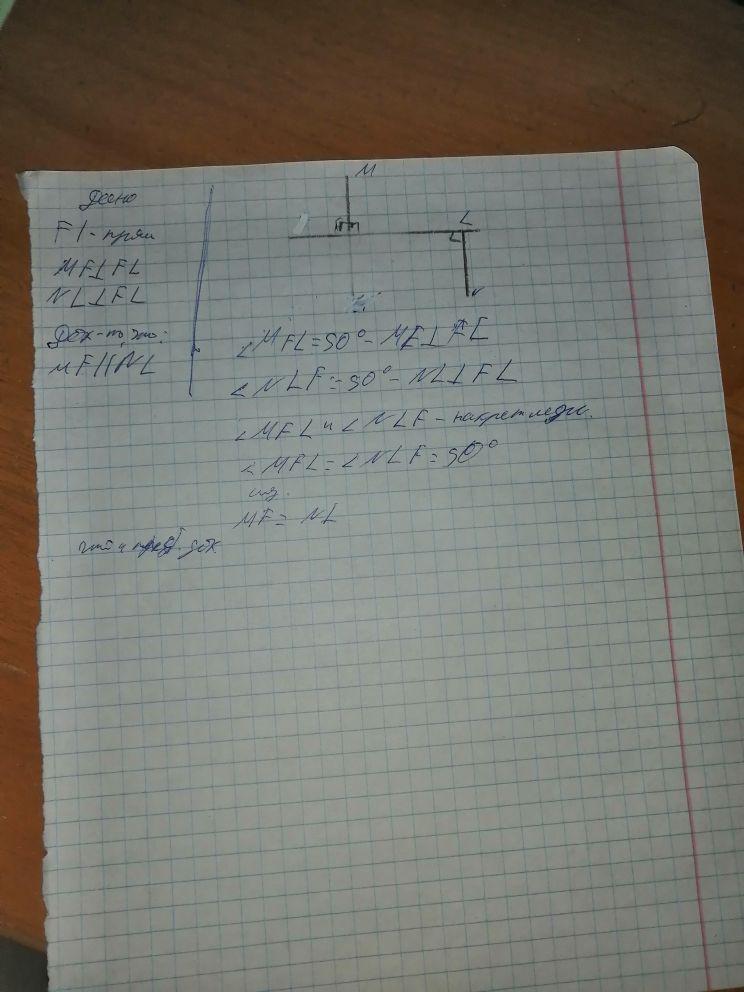 Дано
FL - прям
MF⊥FL
NL⊥FL
Док-ть, что:
MF||NL
M
L
∠MFL=90° - MF⊥FL
∠NLF=90° - NL⊥FL
∠MFL и ∠NLF - накрестлежи.
∠MFL=∠NLF=90°
MF= NL